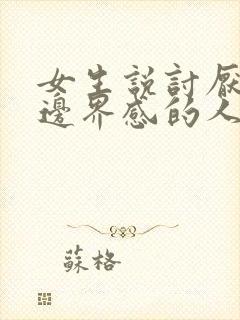 女生說討厭
邊界感的人
蘇格